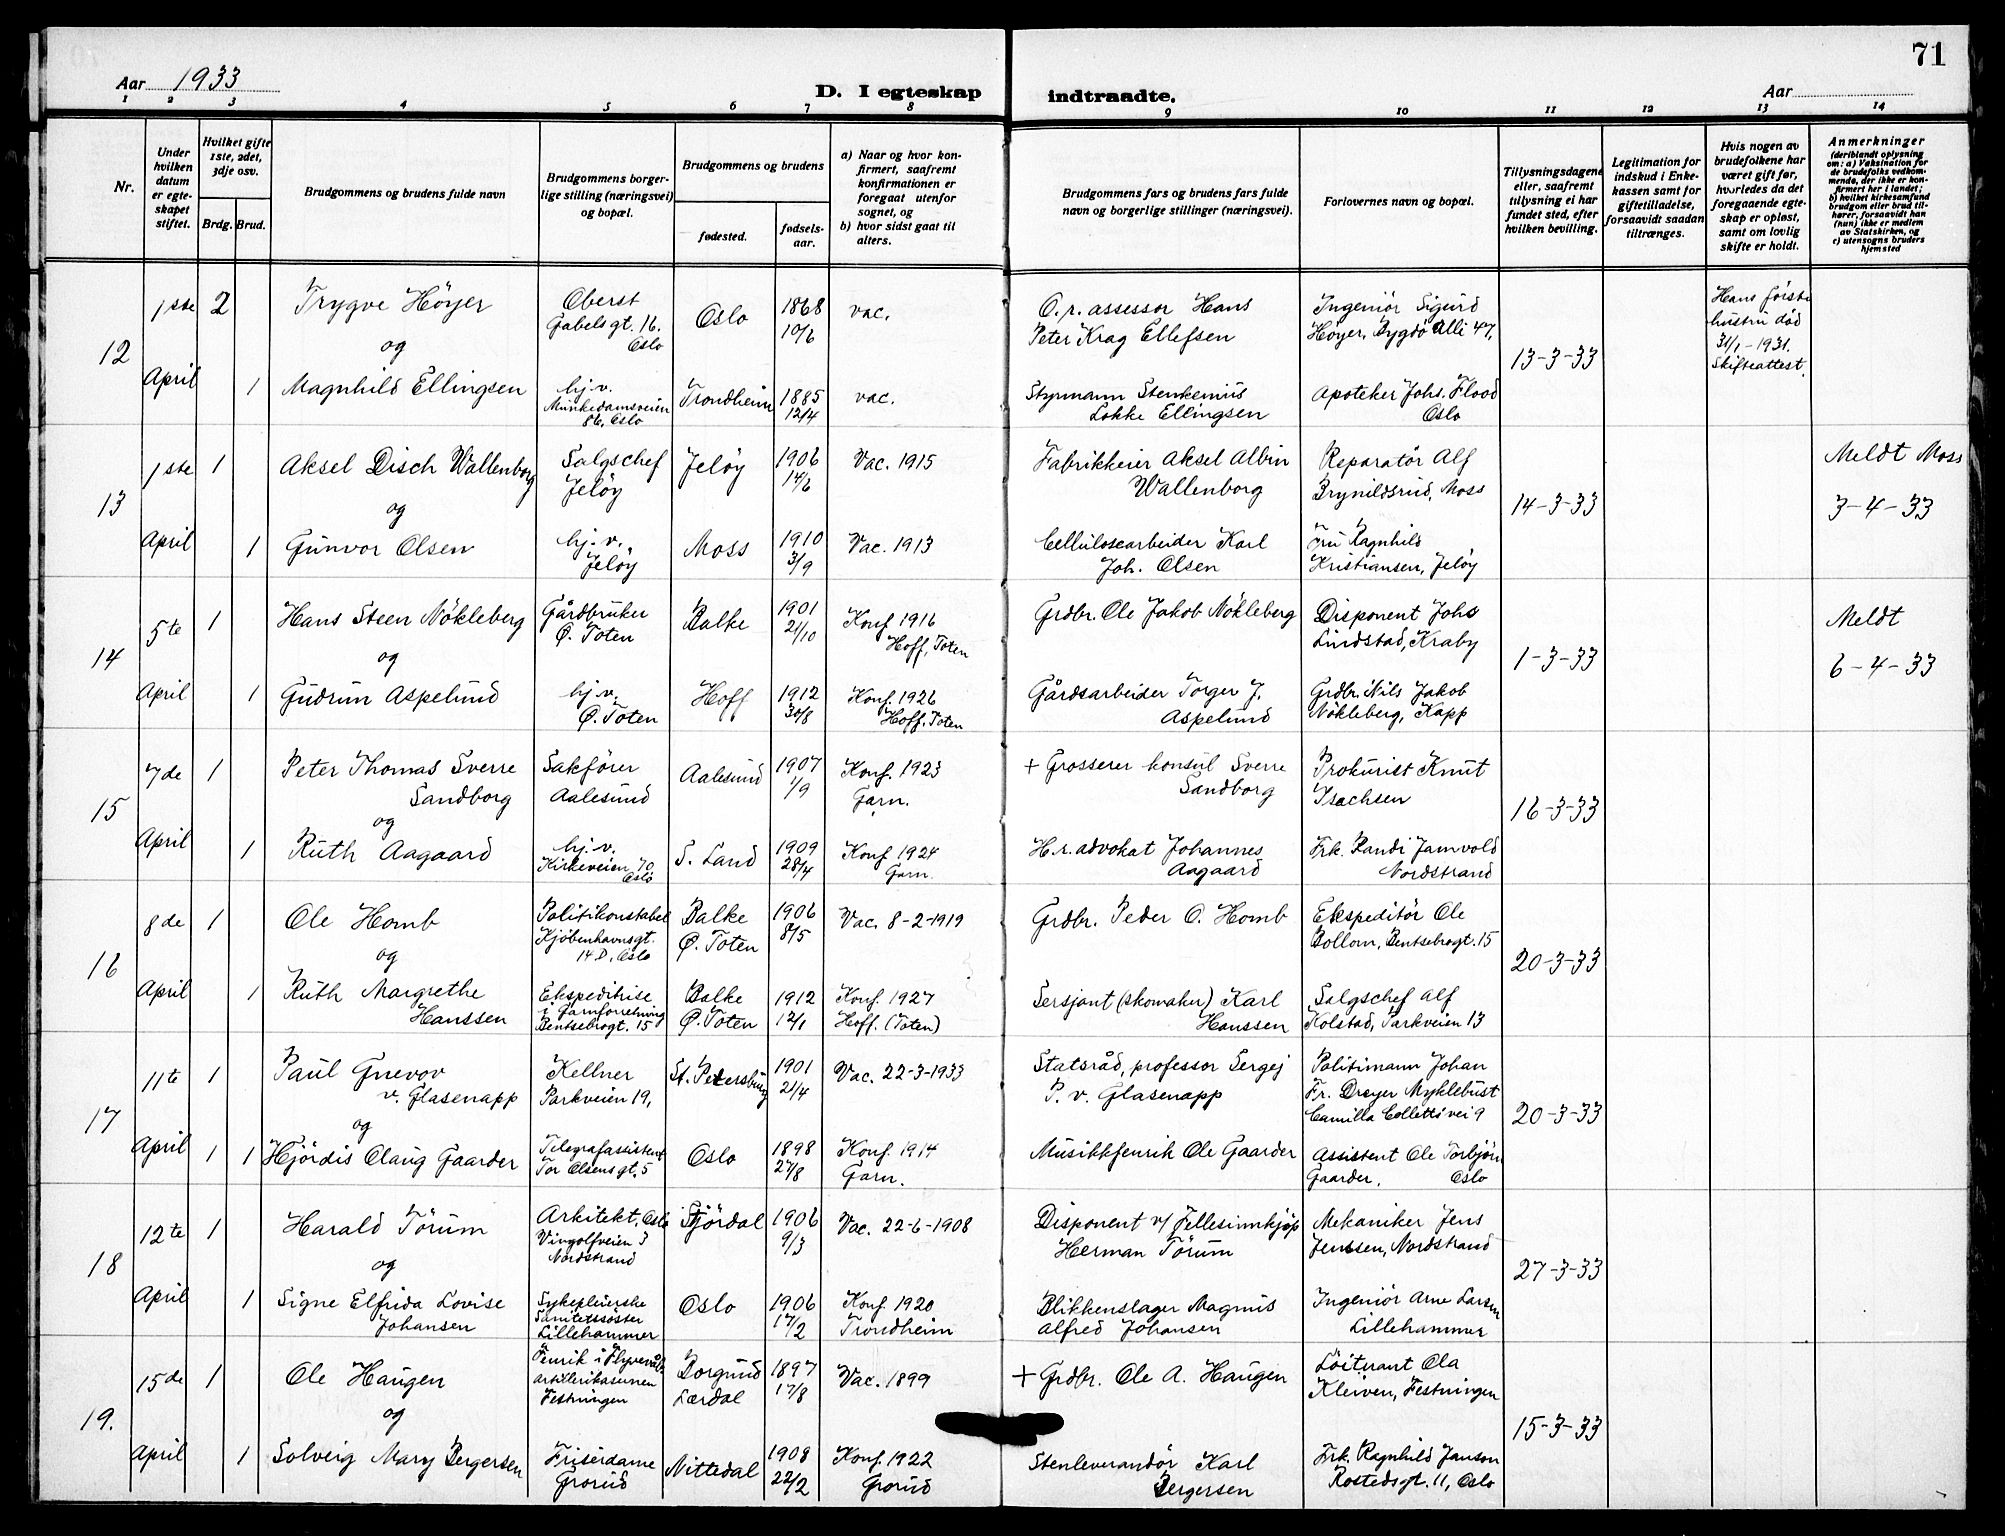 71
Aar 1933
D. I egteskap
indtraadte.
Aar
1 2 3 4 5 6 7 8 9 10 11 12 13 14
Nr.
Under hvilken datum er egteskapet stiftet.
Hvilket gifte 1ste, 2det, 3dje osv.
Brdg. Brud.
Brudgommens og brudens fulde navn
Brudgommens borgerlige stilling (næringsvei) og bopæl.
Brudgommens og brudens
fødested.
fødselsaar.
a) Naar og hvor konfirmert, saafremt konfirmationen er foregaat utenfor sognet, og
b) hvor sidst gaat til alters.
Brudgommens fars og brudens fars fulde navn og borgerlige stillinger (næringsvei).
Forlovernes navn og bopæl.
Tillysningsdagene eller, saafremt tillysning ei har fundet sted, efter hvilken bevilling.
Legitimation for indskud i Enkekassen samt for giftetilladelse, forsaavidt saadan tiltrænges.
Hvis nogen av brudefolkene har været gift før, hvorledes da det foregaaende egteskap er opløst, samt om lovlig skifte er holdt.
Anmerkninger
(deriblandt oplysning om: a) Vaksination for de brudefolks vedkommende, der ikke er konfirmert her i landet; b) hvilket kirkesamfund brudgom eller brud tilhører, forsaavidt han (hun) ikke er medlem av Statskirken, og c) utensogns bruders hjemsted
12
1ste April
2
Trygve Höyer
og
1
Magnhild Ellingsen
Oberst
Gabelsgt. 16.
Oslo
hj. v.
Munkedamsveien
86, Oslo
Oslo
Trondheim
1868
10/6
1885
12/4
vac.
vac.
O.r. assessor Hans
Peter Krag Ellefsen
Styrmann Stenkenius
Lökke Ellingsen
Ingeniör Sigurd
Höyer, Bygdö Alle 47.
Apoteker Johs. Flood
Oslo
13-3-33
Hans förste
hustru död
31/1-1931.
Skifteattest.
13
1ste April
1
Aksel Disch Wallenborg
og
1
Gunvor Olsen
Salgschef
Jelöy
hj. v.
Jelöy
Jelöy
Moss
1906
14/6
1910
3/9
Vac. 1915
Vac. 1913
Fabrikkeier Aksel Albin
Wallenborg
Cellulosearbeider Karl
Joh. Olsen
Reparatör Alf
Brynildsrud, Moss
Fru Ragnhild
Kristiansen, Jelöy
14-3-33
Meldt Moss
3-4-33
14
5te April
1
Hans Steen Nökleberg
og
1
Gudrun Aspelund
Gårdbruker
Ø. Toten
hj. v.
Ø. Toten
Balke
Hoff
1901
21/10
1912
30/8
Konf 1916
Hoff, Toten
Konf. 1926
Hoff, Toten
Grdbr. Ole Jakob Nökleberg
Gårdsarbeider Torger J.
Aspelund
Disponent Johs
Lindstad, Kraby
Grdbr. Nils Jakob
Nökleberg, Kapp
1-3-33
Meldt
6-4-33
15
7de April
1
Peter Thomas Sverre
Sandborg
og
1
Ruth Aagaard
Sakförer
Aalesund
hj. v.
Kirkeveien 70
Oslo
Aalesund
S. Land
1907
1/9
1909
28/4
Konf. 1923
Garn.
Konf 1924
Garn.
+ Grosserer konsul Sverre
Sandborg
H.r. advokat Johannes
Aagaard
Prokurist Knut
Isachsen
Frk. Randi Jamvold
Nordstrand
16-3-33
16
8de April
1
Ole Homb
og
1
Ruth Margrethe
Hanssen
Politikonstabel
Kjöbenhavnsgt.
14 D, Oslo
Ekspeditrise
i Garnforretning
Bentsebrogt. 15
Balke
Ø. Toten
Balke
Ø. Toten
1906
8/5
1912
12/1
Vac. 8-2-1919
Konf. 1927
Hoff. (Toten)
Grdbr. Peder O. Homb
Sersjant (skomaker) Karl
Hanssen
Ekspeditör Ole
Bollom, Bentsebrogt. 15
Salgschef Alf
Kolstad, Parkveien 13
20-3-33
17
11te April
1
Paul Gnevov
v. Glasenapp
og
1 1
Hjördis Olaug Gaarder
Kellner
Parkveien 19,
Telegrafassistent
Tor Olsensgt. 5
St. Petersburg
Oslo
1901
21/4
1898
27/8
Vac. 22-3-1933
Konf. 1914
Garn.
Statsråd, professor Sergej
P. v. Glasenapp
Musikkfenrik Ole Gaarder
Politimann Johan
Fr. Dreyer Myklebust
Camilla Colletts vei 9
Assistent Ole Torbjörn
Gaarder. Oslo
20-3-33
18
12te April
1
Harald Törum
og
1
Signe Elfrida Lovise
Johansen
Arkitekt, Oslo
Vingolfveien 3
Nordstrand
Sykepleierske
Sanitetssöster
Lillehammer
Stjördal
Oslo
1906
9/3
1906
17/2
Vac. 22-6-1908
Konf. 1920
Trondheim
Disponent v/ Fellesinnkjöp
Herman Törum
Blikkenslager Magnus
Alfred Johansen
Mekaniker Jens
Jenssen, Nordstrand
Ingeniör Arne Larsen
Lillehammer
27-3-33
19.
15de April
1
Ole Haugen
og
1
Solveig Mary Bergersen
Fenrik i Flyvevåb.
Festningen
Frisérdame
Grorud
Borgund
Lærdal
Nittedal
1897
17/8
1908
22/2
Vac. 1899
Konf. 1922
Grorud
+ Grdbr. Ole A. Haugen
Stenleverandör Karl
Bergersen
Löitnant Ola
Kleiven, Festningen
Frk. Ragnhild Janson
Rostedsgt. 11, Oslo
15-3-33